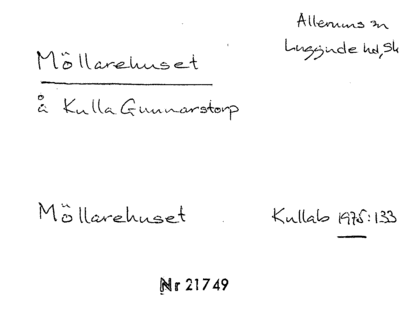 Allerums sn
Luggude hd, Sk
Möllarehuset
å Kulla Gunnarstorp
Möllarehuset Kullab 1975:133
Nr 21749